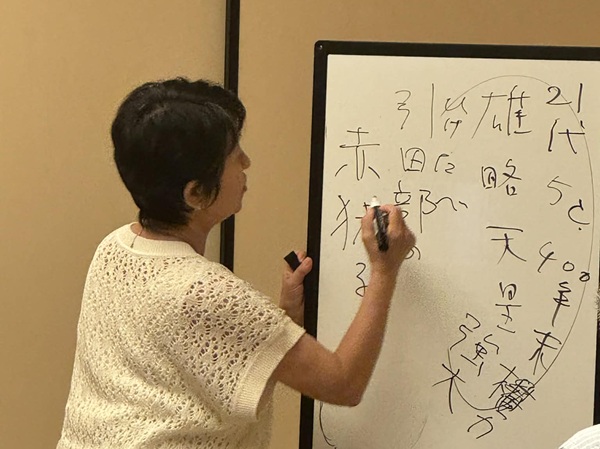 21代 5C. 400年末
雄略天皇
強大
引田部の
赤猪子